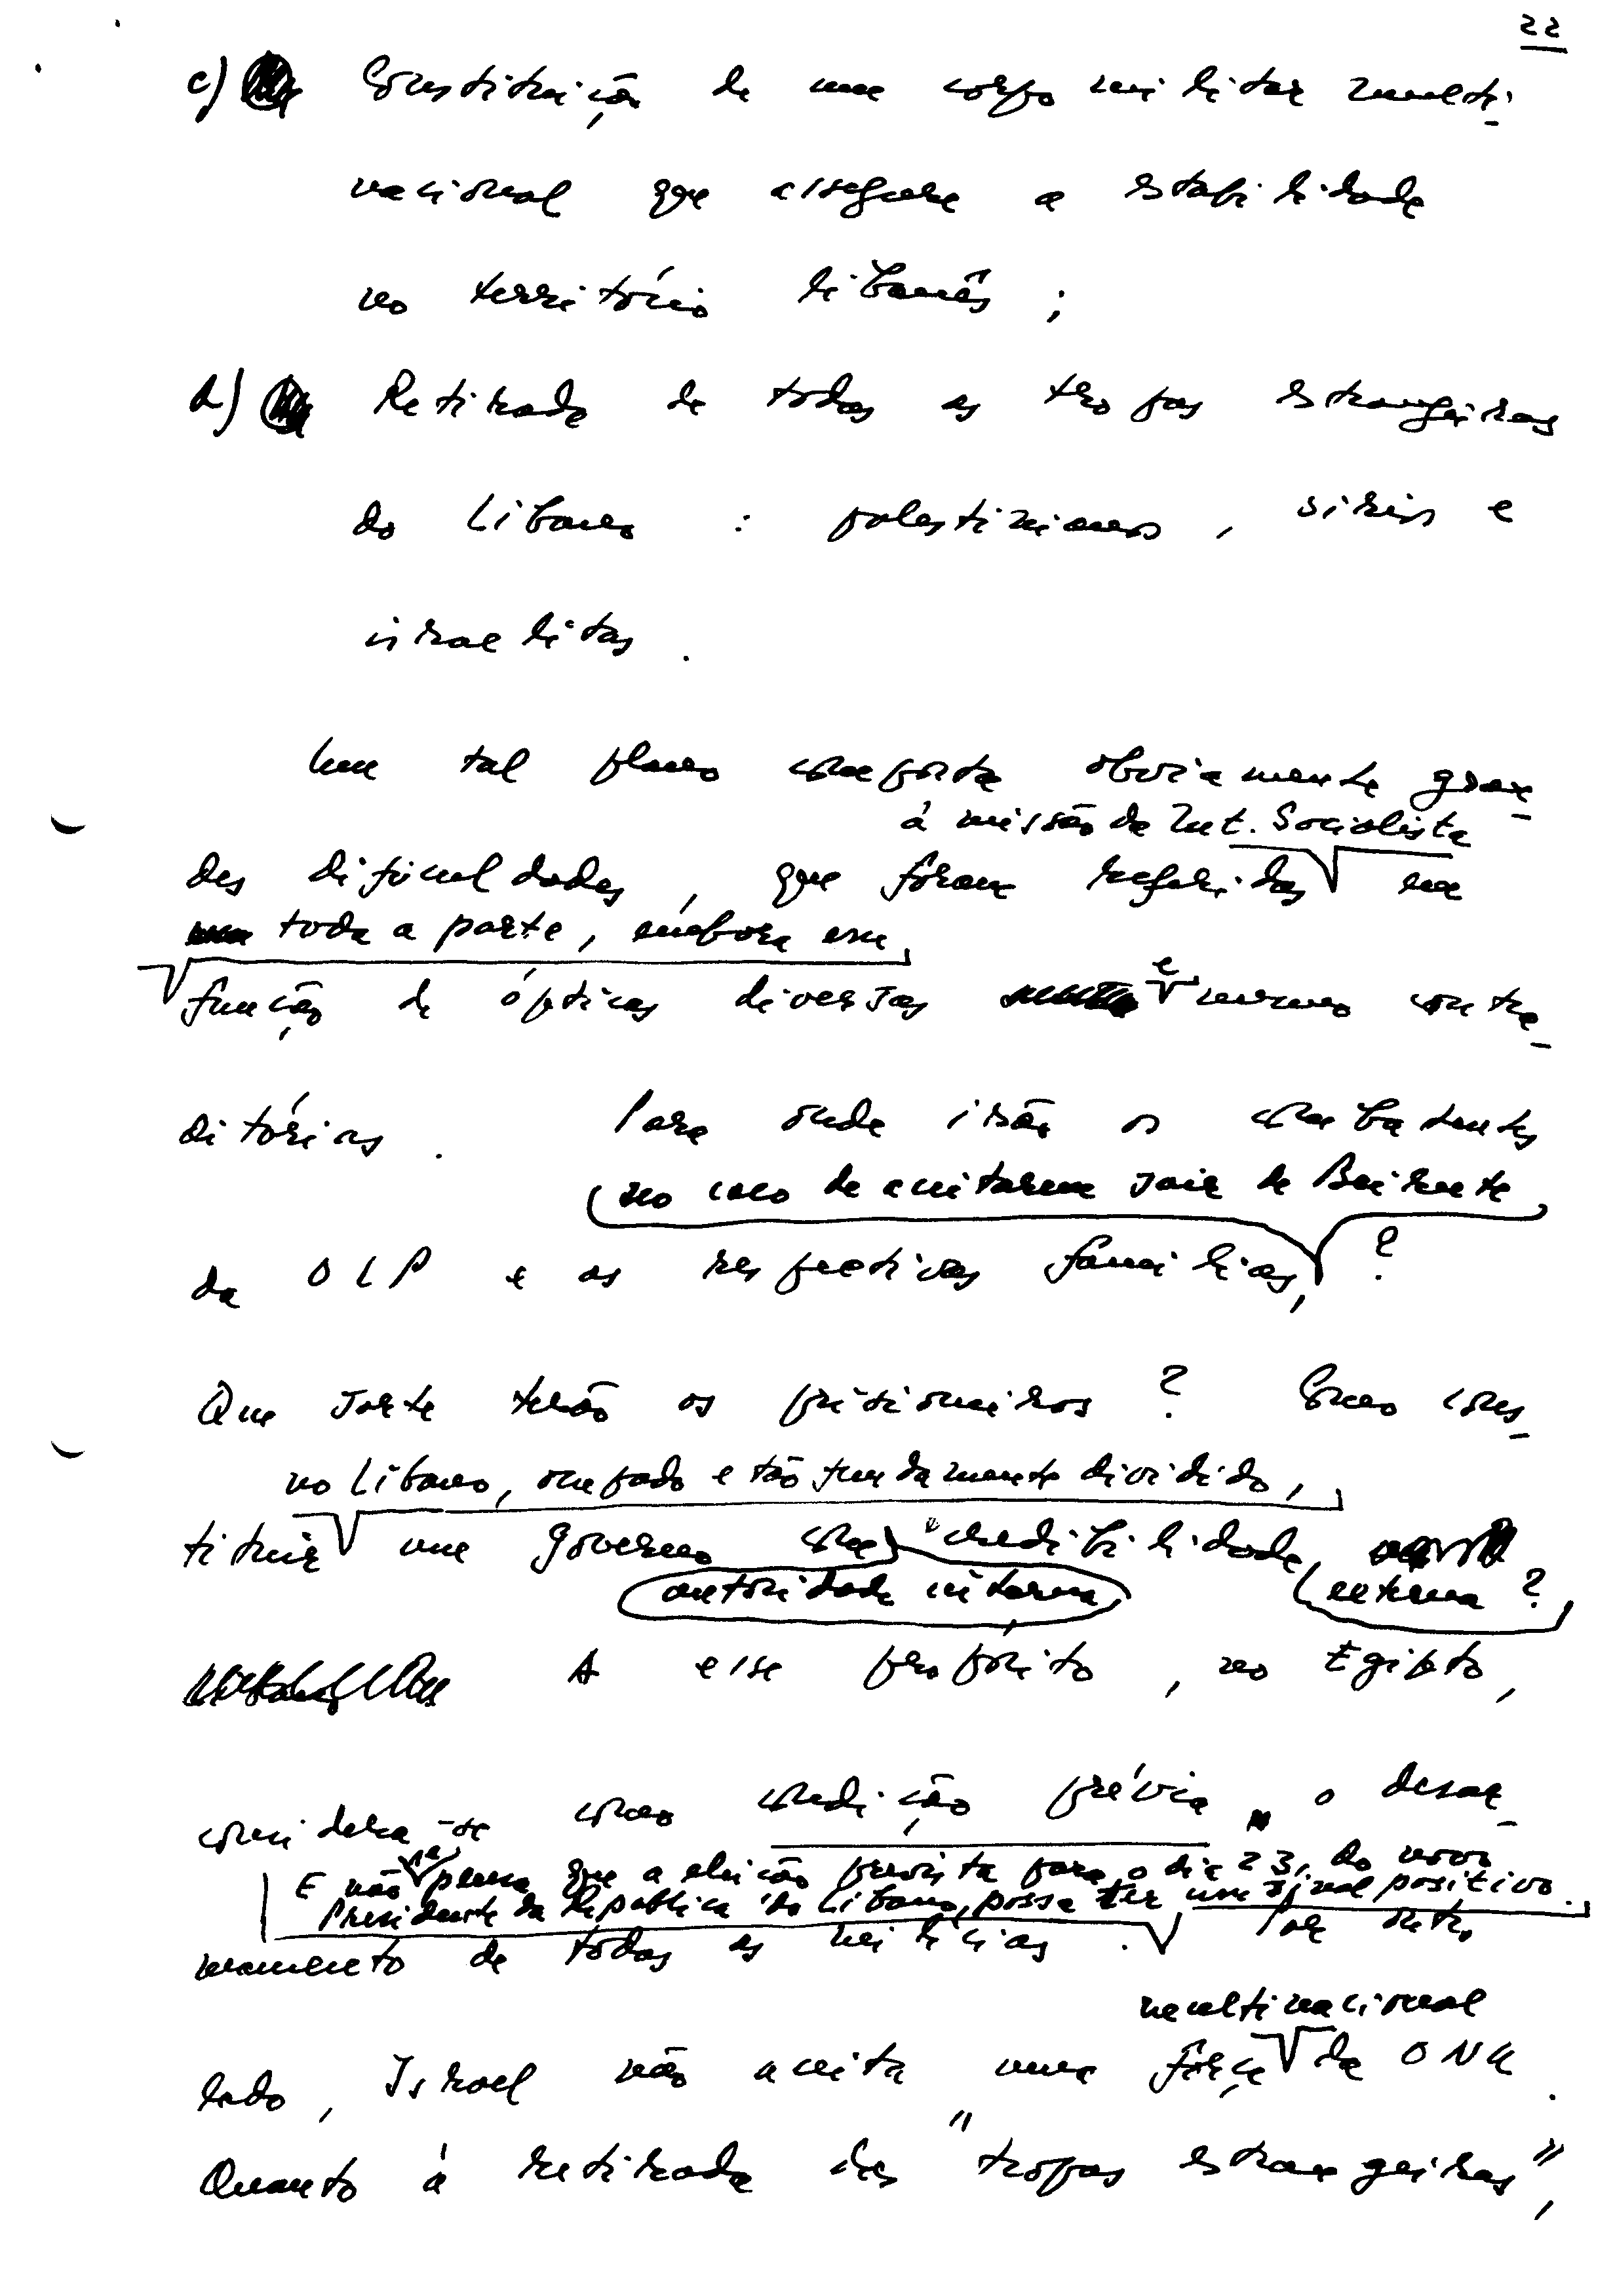 22
c) Constituição de um corpo militar multi-
nacional que assegure a estabilidade
no território libanês ;
d) Retirada de todas as tropas estrangeiras
do Líbano : palestinianos , sírios e
israelitas .
Um tal plano comporta obviamente gran-
à missão da Int. Socialista
des dificuldades , que foram referidas em
toda a parte, embora em
função de ópticas diversas e mesmo contra-
ditórias . Para onde irão os combatentes
no caso de aceitarem sair de Beirute
da OLP e as respectivas famílias, ?
Que sorte terão os prisioneiros ? Como cons-
no Líbano, ocupado e tão fundamente dividido,
tituir um governo com credibilidade
autoridade interna externa ?
A esse propósito , no Egipto ,
considera-se como condição prévia o desar-
E não se pensa que a eleição prevista para o dia 23, do novo
Presidente da República do Líbano, possa ter um sinal positivo.
mamento de todas as milícias . Por outro
multinacional
lado , Israel não aceita uma força da ONU .
Quanto à retirada das "tropas estrangeiras",